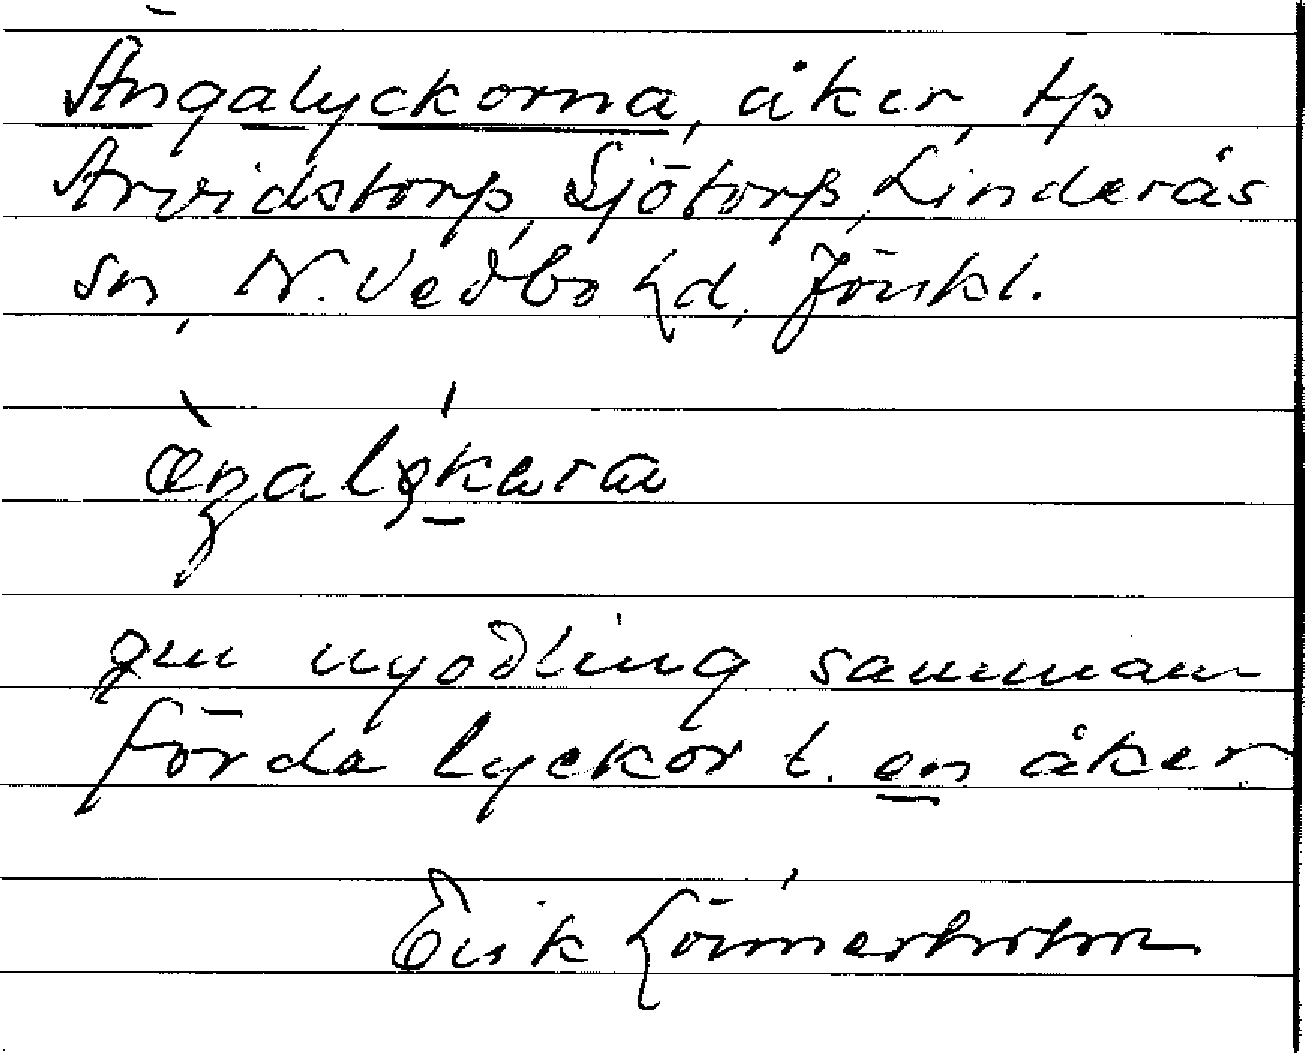 Ängalyckorna, åker, tp
Arvidstorp, Sjötorp, Linderås
sn, N. Vedbo hd, Jönkl.
æŋalykara
gm nyodling samman-
förda lyckor t. en åker
Erik